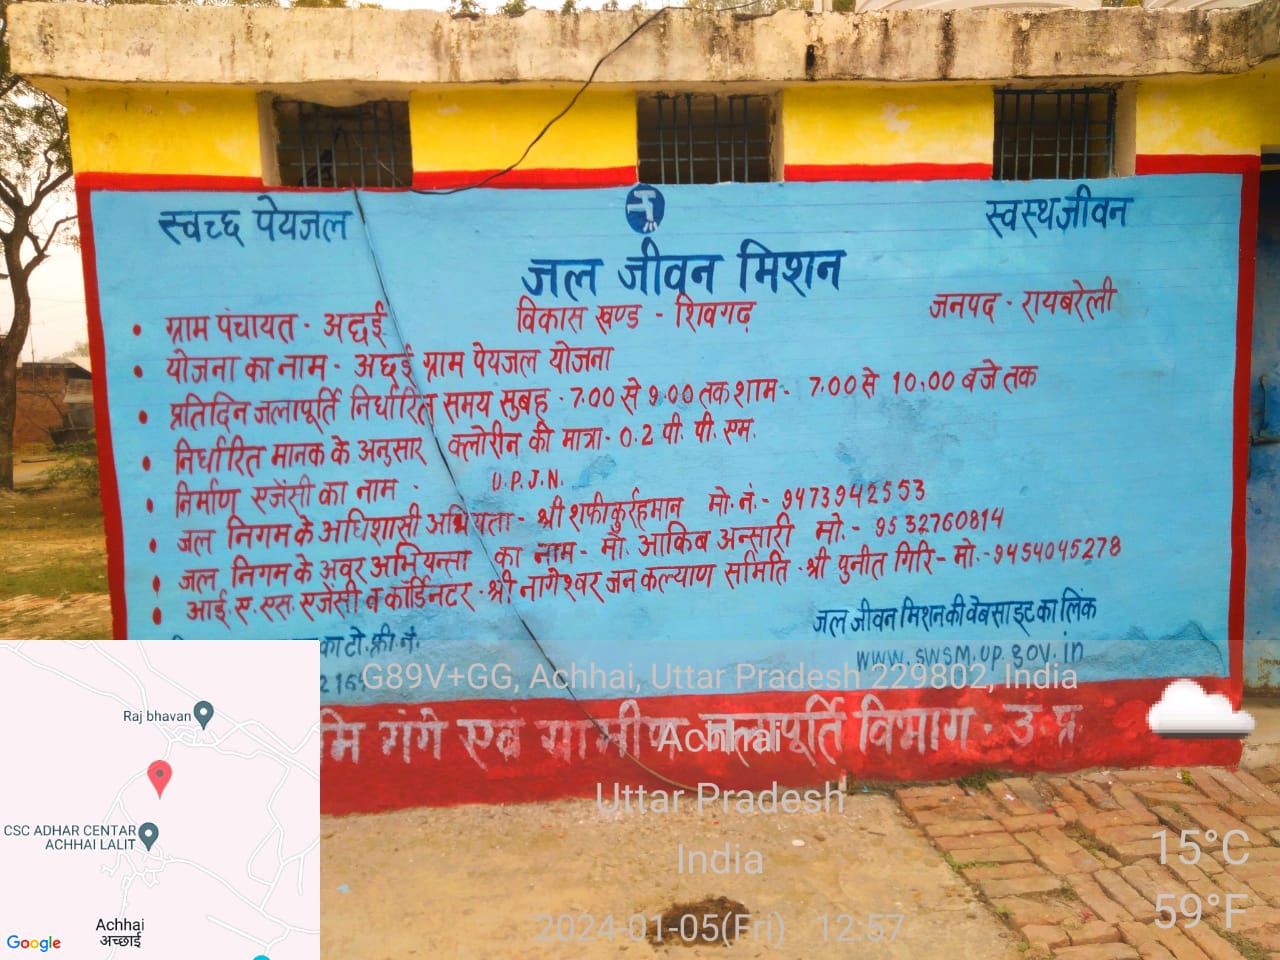 स्वच्छ पेयजल
स्वस्थ जीवन
जल जीवन मिशन
• ग्राम पंचायत - अछई विकास खण्ड - शिवगढ़ जनपद - रायबरेली
• योजना का नाम - अछई ग्राम पेयजल योजना
• प्रतिदिन जलापूर्ति निर्धारित समय सुबह - 7.00 से 9.00 तक शाम - 7.00 से 10.00 बजे तक
• निर्धारित मानक के अनुसार क्लोरीन की मात्रा - 0.2 पी. पी. एम.
• निर्माण एजेंसी का नाम - U.P.J.N.
• जल निगम के अधिशासी अभियंता - श्री शफीकुर्रहमान मो. नं. - 9473942553
• जल निगम के अवर अभियन्ता का नाम - मो. आकिब अन्सारी मो. - 9532760814
• आई. ए. एस. एजेंसी व कॉर्डिनटर - श्री नागेश्वर जन कल्याण समिति - श्री पुनीत गिरि - मो. - 9454045278
का टो. फ्री. नं.
जल जीवन मिशन की वेबसाइट का लिंक
www.swsm.up.gov.in
मि गंगे एवं ग्रामीण जलापूर्ति विभाग - उ. प्र.
G89V+GG, Achhai, Uttar Pradesh 229802, India
Achhai
Uttar Pradesh
India
2024-01-05(Fri) 12:57
15°C
59°F
Raj bhavan
CSC ADHAR CENTAR
ACHHAI LALIT
Achhai
अच्छाई
Google